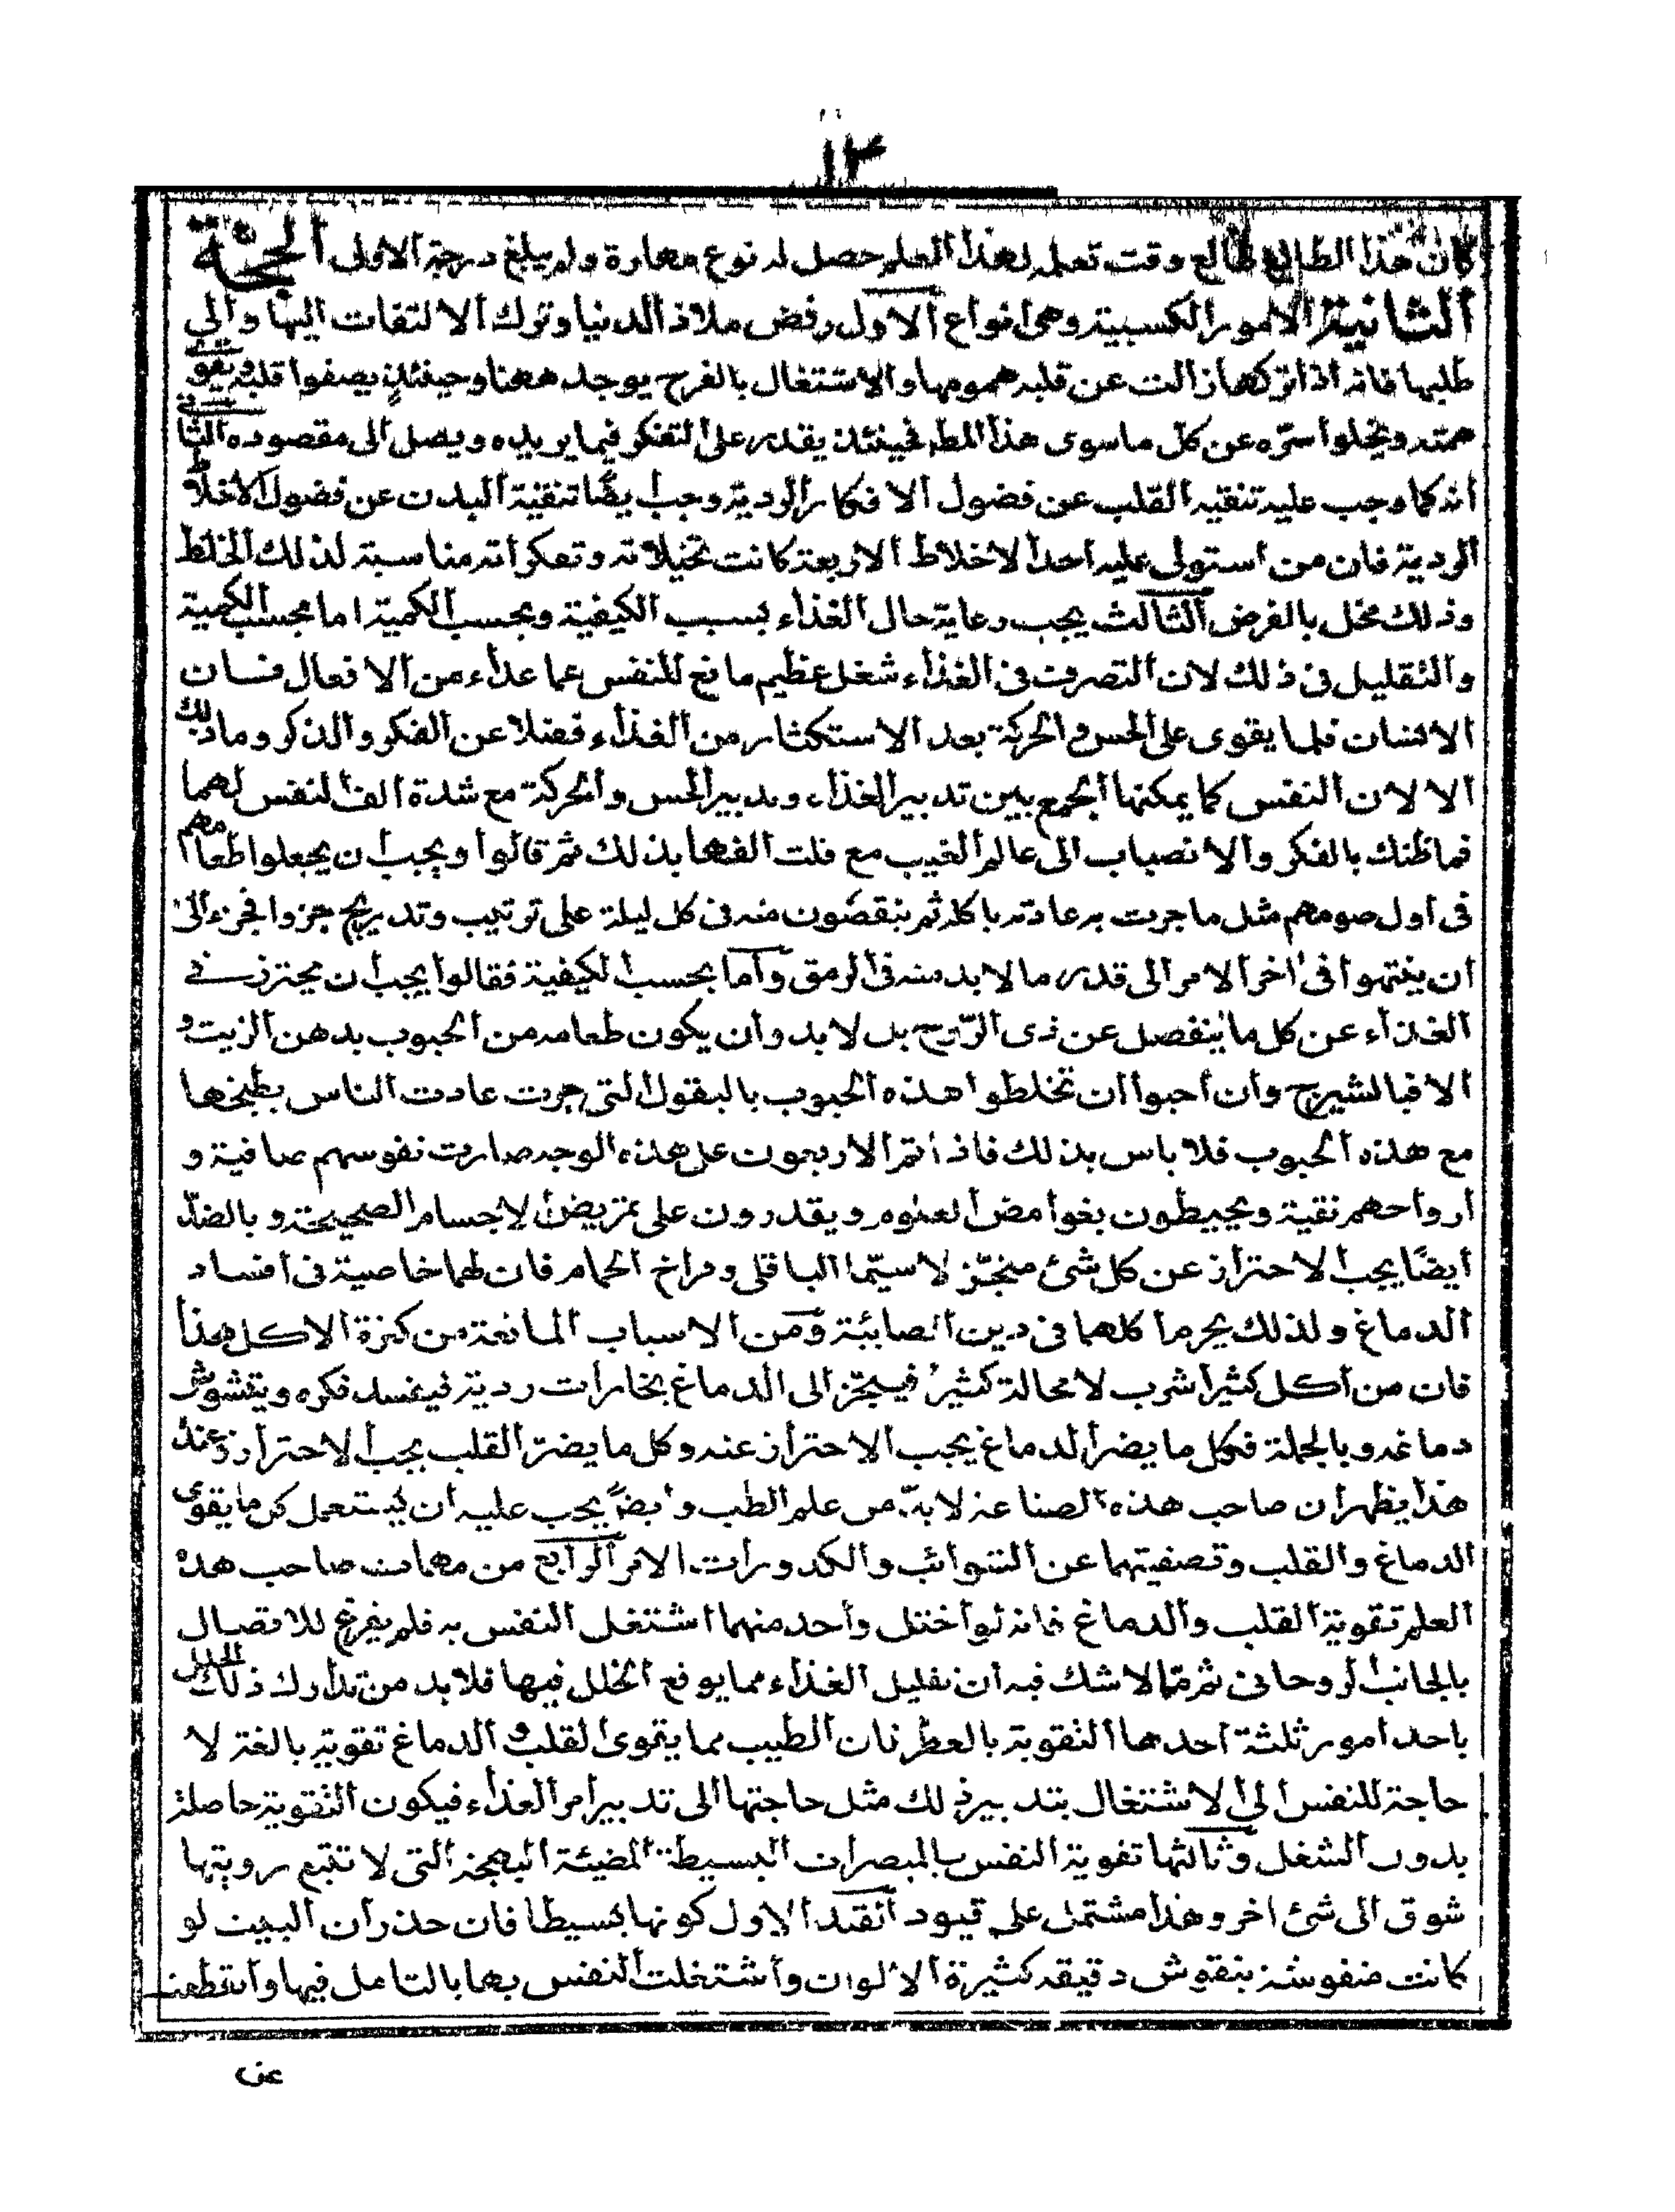 ١٣
كان هذا الطالع طالع وقت تعلمه لهذا العلم حصل له نوع مهارة ولم يبلغ درجة الاولى الحجة
الثانية الامور الكسبية وهى انواع الاول رفض ملاذ الدنيا وترك الالتفات اليها والى
طلبها فانه اذا تركها زالت عن قلبه همومها والاشتغال بالفرح يوجد ههنا وحينئذٍ يصفوا قلبه ويقوى
همته ويخلوا سرّه عن كل ما سوى هذا المط فحينئذ يقدر على التفكر فيما يريده ويصل الى مقصوده الثانى
انه كما وجب عليه تنقيه القلب عن فضول الافكار الردية وجب ايضًا تنقية البدن عن فضول الاخلاط
الردية فان من استولى عليه احد الاخلاط الاربعة كانت تخيلاته وتفكراته مناسبة لذلك الخلط
وذلك مخل بالفرض الثالث يجب رعاية حال الغذاء بسبب الكيفية وبحسب الكمية اما بحسب الكمية
والتقليل فى ذلك لان التصرف فى الغذاء شغل عظيم مانع للنفس عما عداء من الافعال فسان
الانسان قلما يقوى على الحس والحركة بعد الاستكثار من الغذاء فضلا عن الفكر والذكر وما ذلك
الا لان النفس كما يمكنها الجمع بين تدبير الغذاء وتدبير الحس والحركة مع شدة الف النفس لهما
فما ظنك بالفكر والانصباب الى عالم الغيب مع قلت الفها بذلك ثم قالوا ويجب ان يجعلوا طعامهم
فى اول صومهم مثل ما جرت به عادته باكله ثم ينقصون منه فى كل ليلة على ترتيب وتدريج جزوا فجزء الى
ان ينتهوا فى اخر الامر الى قدر ما لا بد منه فى الرمق واما بحسب الكيفية فقالوا يجب ان يحترز فى
الغذاء عن كل ما ينفصل عن ذى الرّوح بل لا بد وان يكون طعامه من الحبوب بدهن الزيت و
الا فبالشيرج وان احبوا ان تخلطوا هذه الحبوب بالبقول التى جرت عادت الناس بطبخها
مع هذه الحبوب فلا باس بذلك فاذا تم الاربعون على هذه الوجه صارت نفوسهم صافية و
ارواحهم نقية ويحيطون بغوامض العلوم ويقدرون على تمريض الاجسام الصحيحة وبالضدّ
ايضًا يجب الاحتراز عن كل شئ مبخّر لا سيّما الباقلى وفراخ الحمام فان لهما خاصية فى افساد
الدماغ ولذلك يحرم اكلهما فى دين الصابئة ومن الاسباب المانعة من كثرة الاكل هذا
فان من اكل كثيرا شرب لا محالة كثيرًا فيبخر الى الدماغ بخارات ردية فيفسد فكره ويتشوش
دماغه وبالجملة فكل ما يضر الدماغ يجب الاحتراز عنه وكل ما يضر القلب يجب الاحتراز وعند
هذا يظهر ان صاحب هذه الصناعة لا بدّ من علم الطب وايضاً يجب عليه ان يستعمل كل ما يقوى
الدماغ والقلب وتصفيتهما عن الشوائب والكدورات الامر الرابع من مهمات صاحب هذه
العلم تقوية القلب والدماغ فانه لو اختل واحد منهما اشتغل النفس به فلم يفرغ للاتصال
بالجانب الروحانى ثم مّا لا شك فيه ان تقليل الغذاء مما يوقع الخلل فيها فلا بد من تدارك ذلك الخلل
باحد امور ثلثة احدها التقوية بالعطر فان الطيب مما يقوى القلب والدماغ تقوية بالغة لا
حاجة للنفس الى الاشتغال بتدبير ذلك مثل حاجتها الى تدبير امر الغذاء فيكون التقوية حاصلة
بدون الشغل وثالثها تقوية النفس بالمبصرات البسيطة المضيئة البهجة التى لا تتبع رويتها
شوق الى شئ اخر وهذا مشتمل على قيود القيد الاول كونها بسيطا فان جدران البيت لو
كانت منقوشة بنقوش دقيقه كثيرة الالوان واشتغلت النفس بها بالتامل فيها وانقطعت
عن